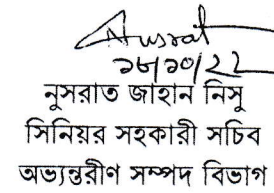 Nusrat
১৮/১০/২২
নুসরাত জাহান নিসু
সিনিয়র সহকারী সচিব
অভ্যন্তরীণ সম্পদ বিভাগ